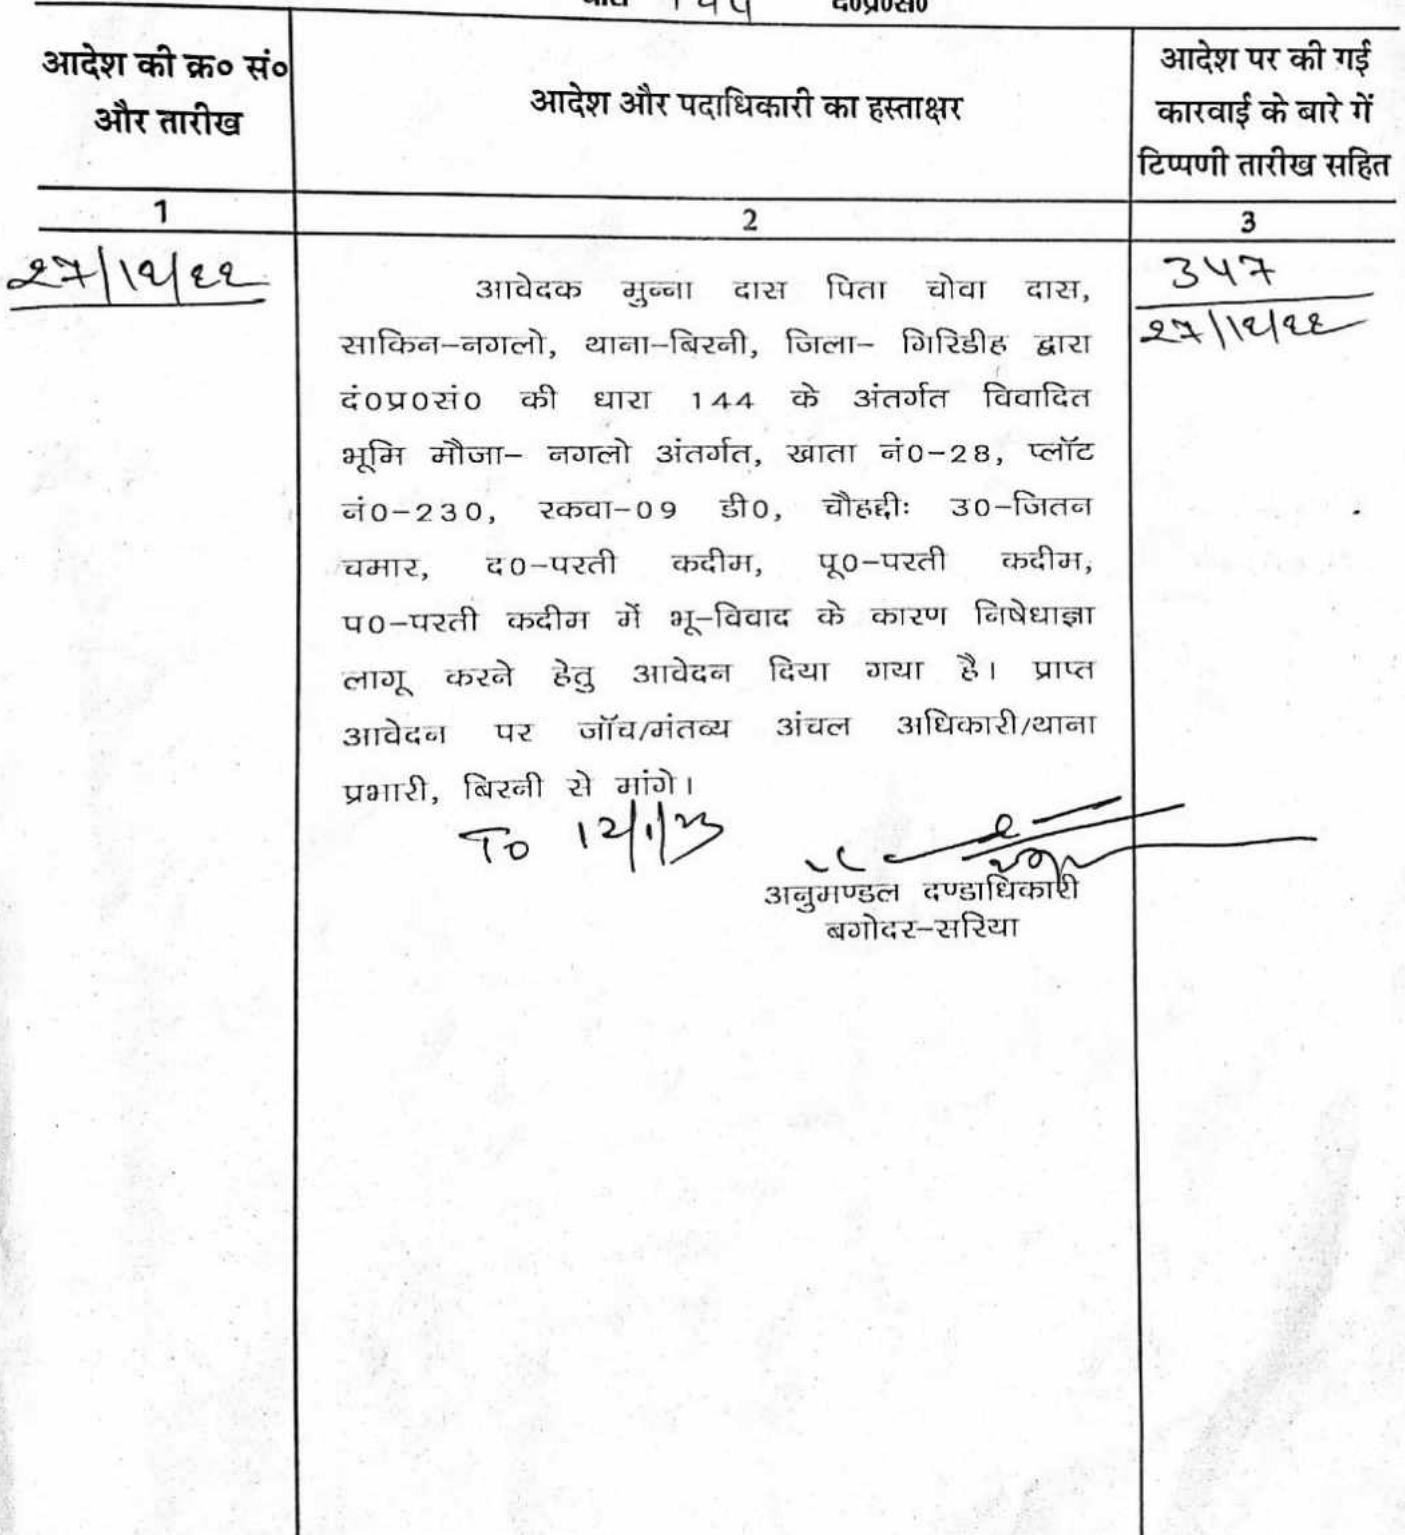 धारा 144 द०प्र०सं०
आदेश की क्र० सं०
और तारीख
आदेश और पदाधिकारी का हस्ताक्षर
आदेश पर की गई
कारवाई के बारे में
टिप्पणी तारीख सहित
1
2
3
27/12/22
347
27/12/22
आवेदक मुन्ना दास पिता चोवा दास,
साकिन-नगलो, थाना-बिरनी, जिला- गिरिडीह द्वारा
दं०प्र०सं० की धारा 144 के अंतर्गत विवादित
भूमि मौजा- नगलो अंतर्गत, खाता नं0-28, प्लॉट
नं0-230, रकवा-09 डी0, चौहद्दीः उ0-जितन
चमार, द0-परती कदीम, पू0-परती कदीम,
प0-परती कदीम में भू-विवाद के कारण निषेधाज्ञा
लागू करने हेतु आवेदन दिया गया है। प्राप्त
आवेदन पर जॉच/मंतव्य अंचल अधिकारी/थाना
प्रभारी, बिरनी से मांगे।
To 12/1/23
अनुमण्डल दण्डाधिकारी
बगोदर-सरिया